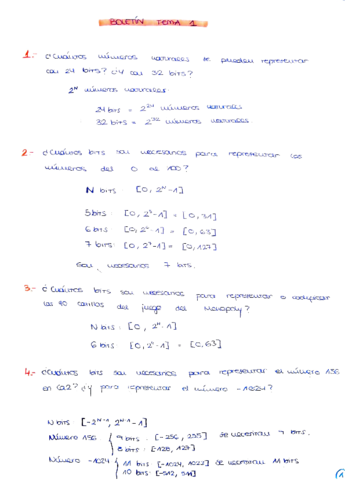 BOLETÍN TEMA 1
1.- ¿Cuántos números naturales se pueden representar
con 24 bits? ¿Y con 32 bits?
2ᴺ números naturales.
24 bits = 2²⁴ números naturales
32 bits = 2³² números naturales.
2.- ¿Cuántos bits son necesarios para representar los
números del 0 al 100?
N bits [0, 2ᴺ-1]
5 bits: [0, 2⁵-1] = [0, 31]
6 bits [0, 2⁶-1] = [0, 63]
7 bits: [0, 2⁷-1] = [0, 127]
Son necesarios 7 bits.
3.- ¿Cuántos bits son necesarios para representar o codificar
las 40 casillas del juego del Monopoly?
N bits: [0, 2ᴺ-1]
6 bits: [0, 2⁶-1] = [0, 63]
4.- ¿Cuántos bits son necesarios para representar el número 136
en Ca2? ¿Y para representar el número -1024?
N bits [-2ᴺ⁻¹, 2ᴺ⁻¹-1]
Número 136 { 9 bits: [-256, 255] Se necesitan 9 bits.
8 bits: [-128, 127]
Número -1024 { 11 bits: [-1024, 1023] Se necesitan 11 bits
10 bits: [-512, 511]
1